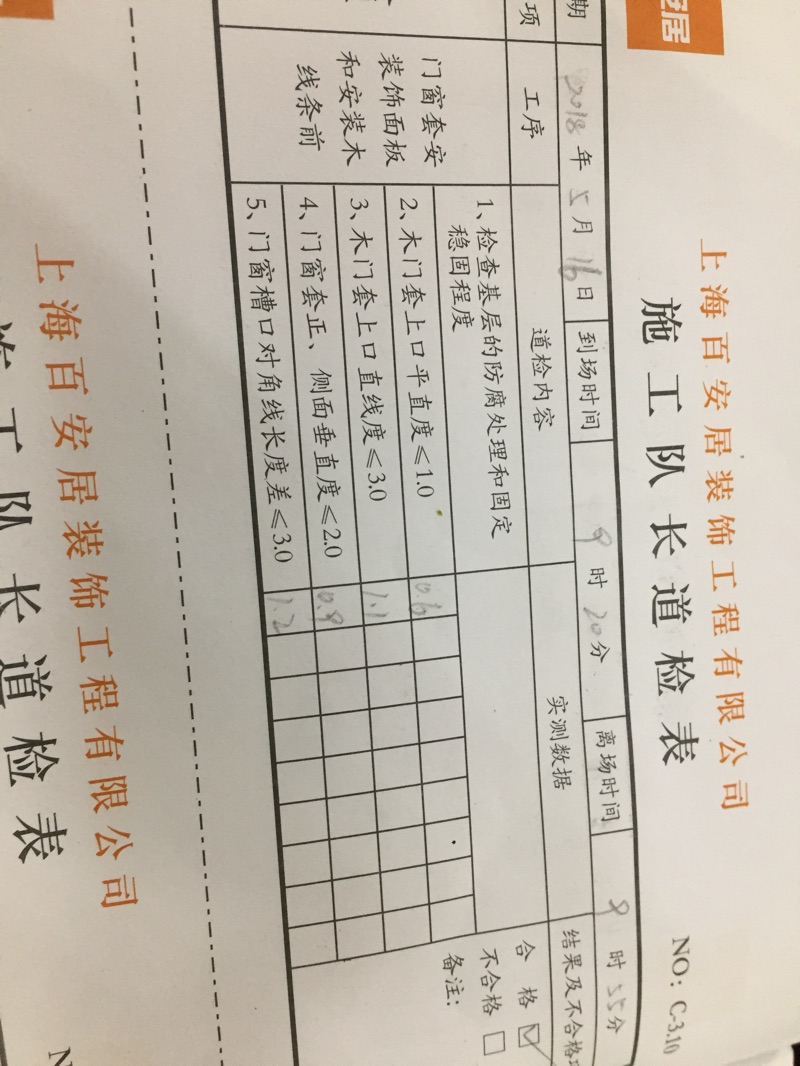 安居
上海百安居装饰工程有限公司
施工队长道检表
NO: C-3.10
期 2018 年 5 月 16 日 到场时间 9 时 20 分 离场时间 9 时 55 分
项 工序 道检内容 实测数据 结果及不合格项
门窗套安
装饰面板
和安装木
线条前
1、检查基层的防腐处理和固定
稳固程度
2、木门套上口平直度≤1.0 0.6
3、木门套上口直线度≤3.0 1.1
4、门窗套正、侧面垂直度≤2.0 0.9
5、门窗槽口对角线长度差≤3.0 1.2
合格 ☑
不合格 □
备注:
上海百安居装饰工程有限公司
施工队长道检表
N